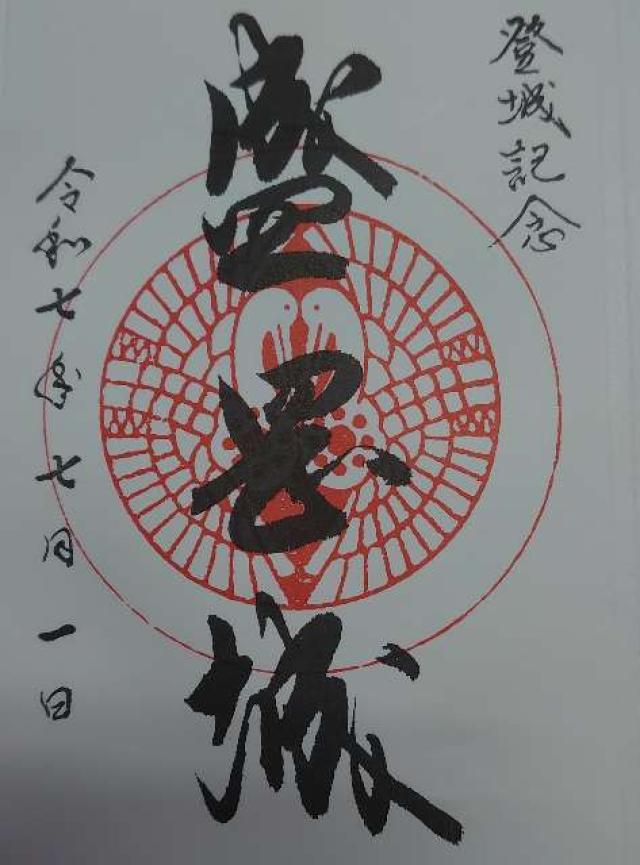 登城記念
盛岡城
令和七年七月一日